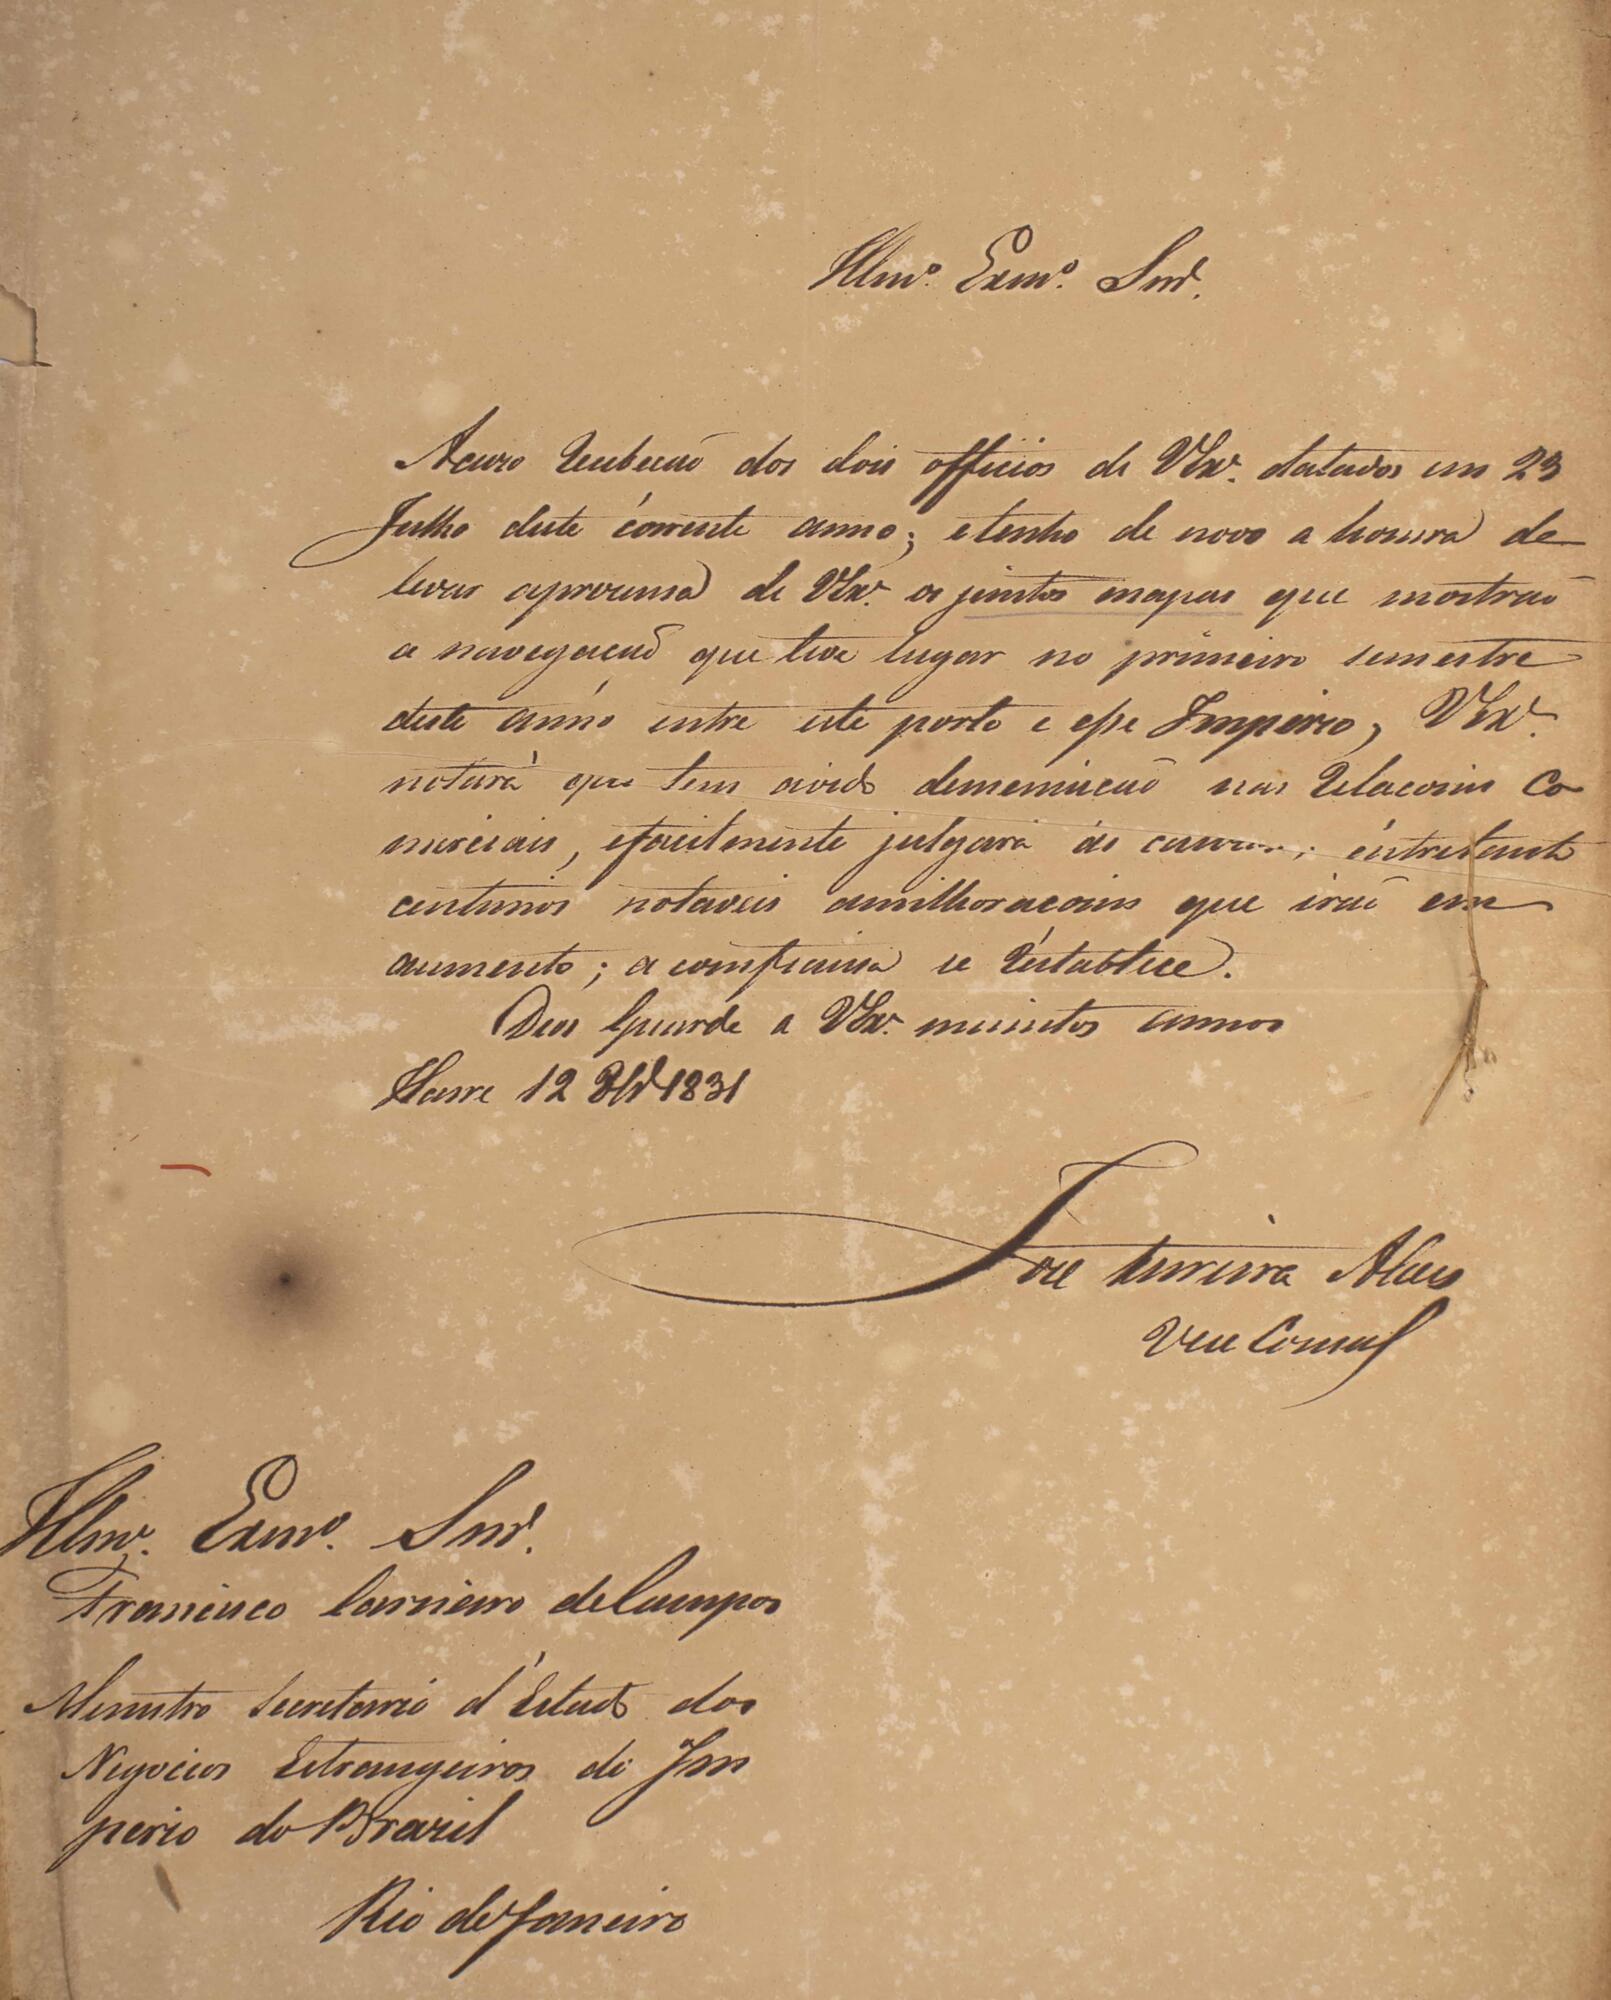 Illmº. Exmº. Snr.
Acuzo Recebecaõ dos dois officios de VEx.ª datados em 23
Julho deste corrente anno; e tenho de novo a honrra de
levar aprezensa de VEx.ª os juntos mapas que mostraõ
a navegacaõ que teve lugar no primeiro semestre
deste anno entre este porto e esse Imperio, VEx.ª
notará que tem avido demenuicaõ nas Relacoins Co
merciais, efacilmente julgará as cauzas; entretanto
centimos notaveis amilhoracoins que iraõ em
aumento; a comfiansa se Restablece.
Deos Guarde a VEx.ª muintos annos
Havre 12 1831
Jose Pereira Alves
Vice Consul
Illmº. Exmº. Snr.
Francisco Carneiro de Campos
Menistro Secretario d'Estado dos
Negocios Estrangeiros do Im
perio do Brazil
Rio de Janeiro